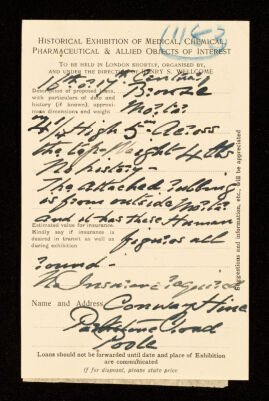 1153
HISTORICAL EXHIBITION OF MEDICAL, CHEMICAL,
PHARMACEUTICAL & ALLIED OBJECTS OF INTEREST
TO BE HELD IN LONDON SHORTLY, ORGANISED BY,
AND UNDER THE DIRECTION OF HENRY S. WELLCOME
17th Century
Description of proposed loans,
with particulars of date and
history (if known), approxi-
mate dimensions and weight
Bronze
Mortar
4¼ High 5 in Across
the top Weight 4 lbs
No history
The Attached Rubbing
is from outside Mortar
and it has these Human
Estimated value for insurance.
Kindly say if insurance is
desired in transit as well as
during exhibition
figures all
round
No Insurance required
Name and Address Conway Hine
Parkstone Road
Poole
Loans should not be forwarded until date and place of Exhibition
are communicated
If for disposal, please state price
suggestions and information, etc., will be appreciated